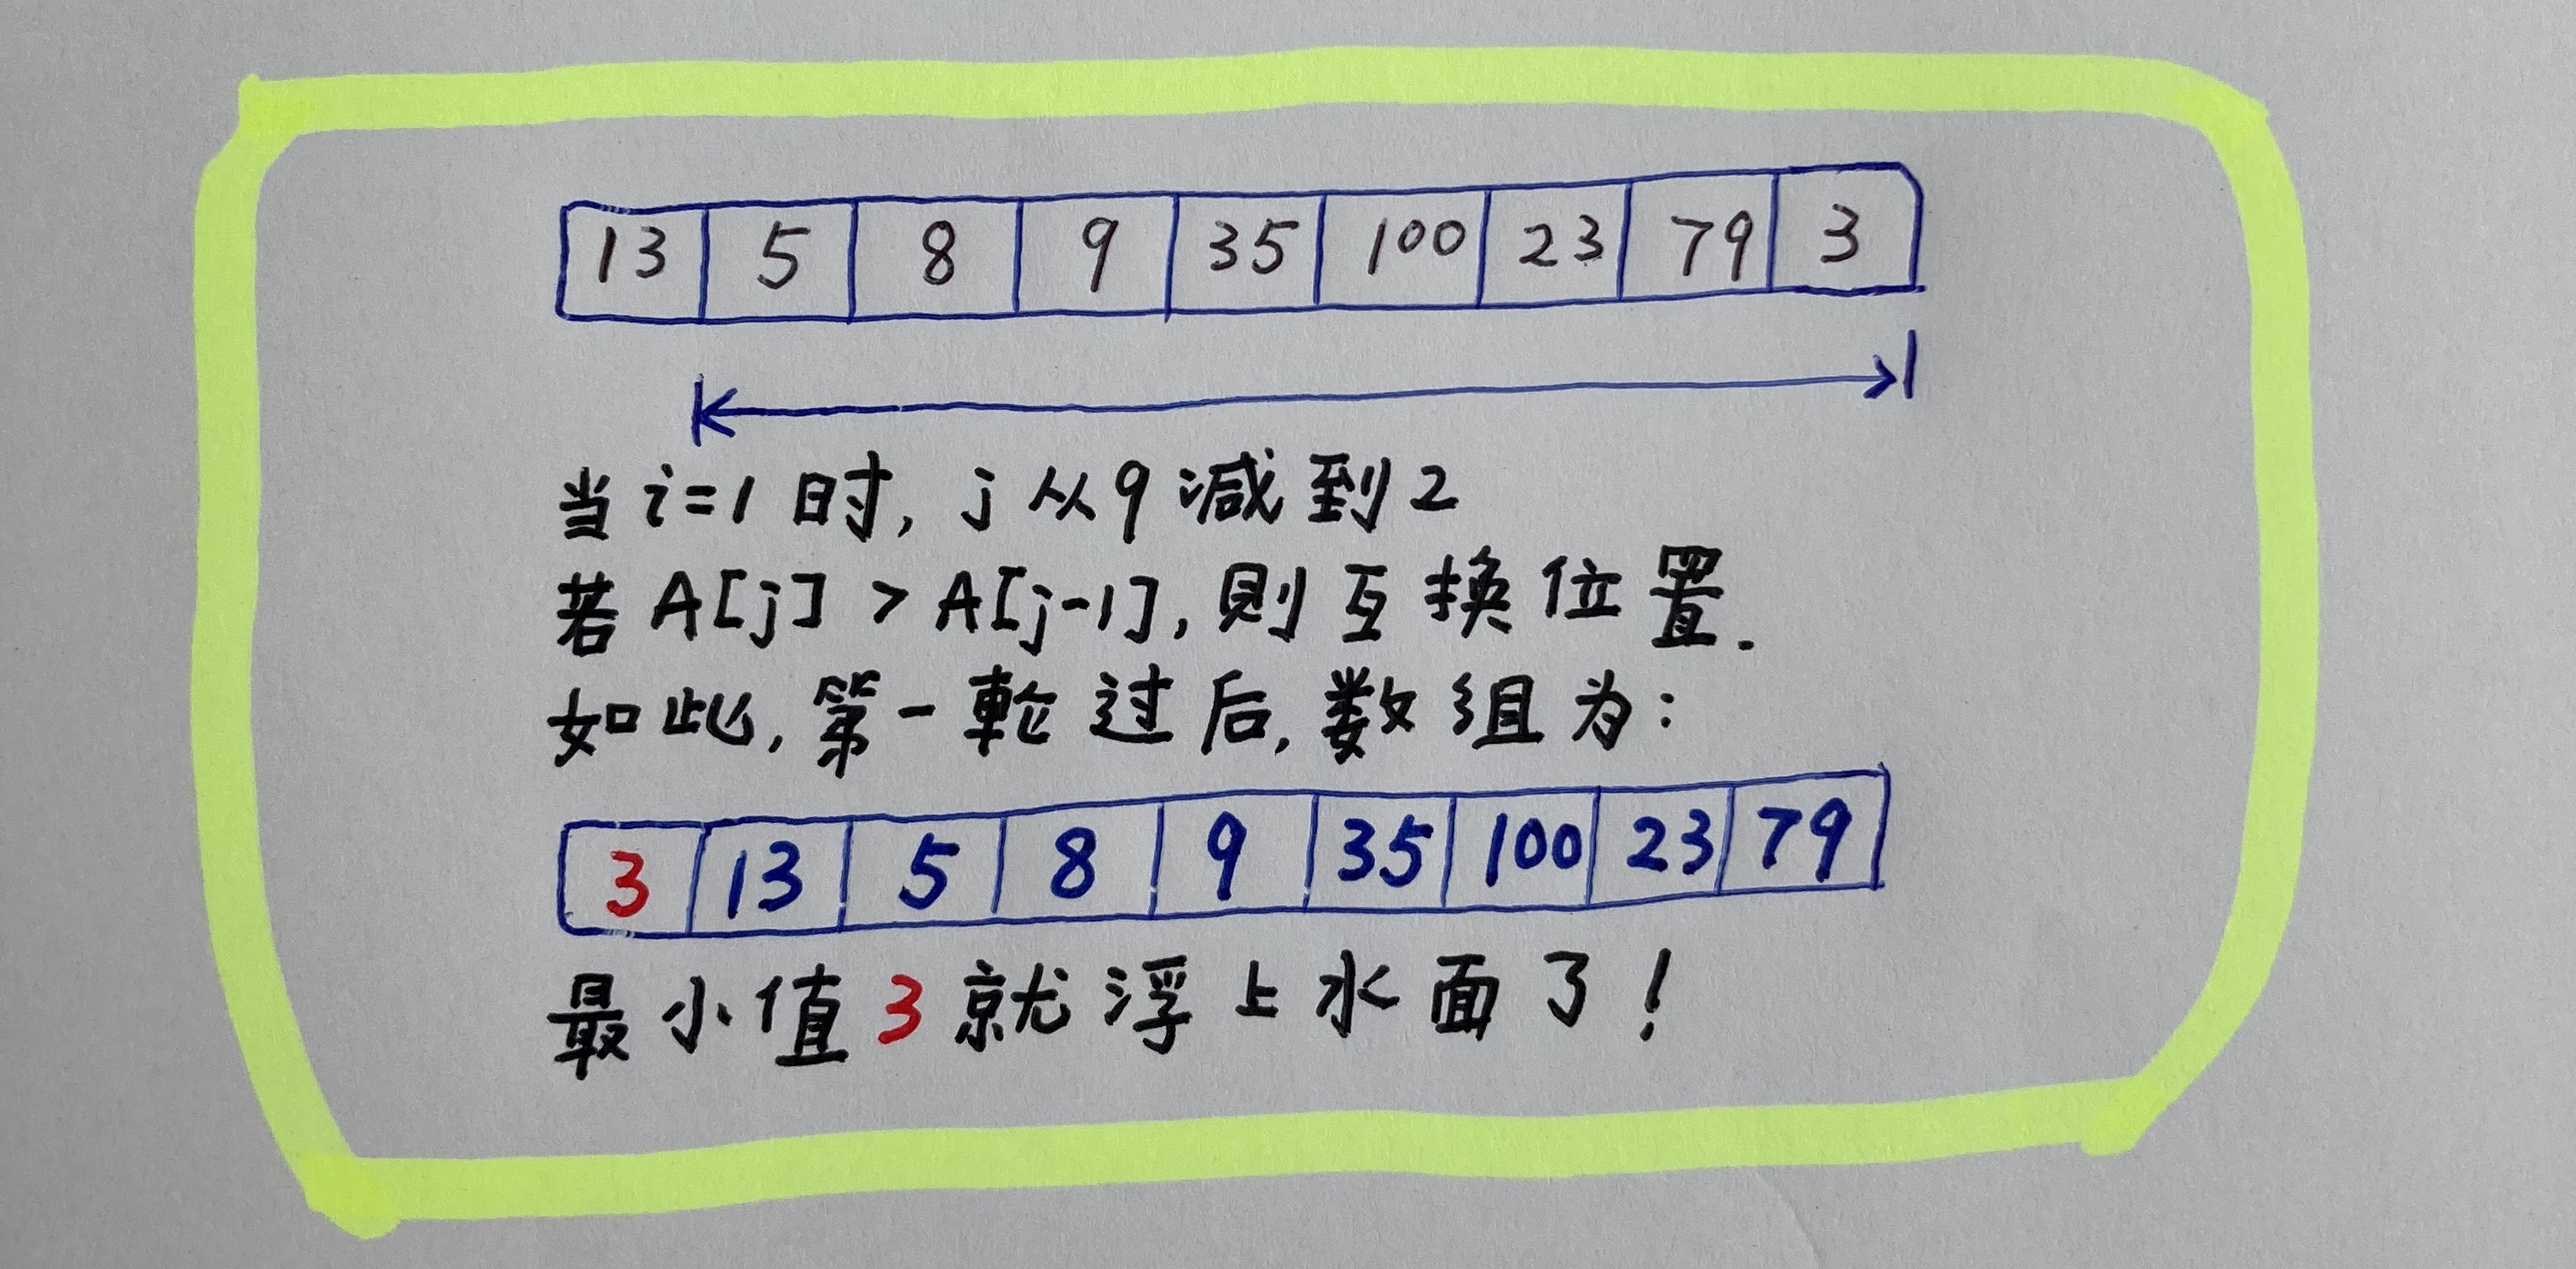 13 5 8 9 35 100 23 79 3
当i=1时, j从9减到2
若A[j] > A[j-1], 則互换位置.
如此, 第一輪过后, 数组为:
3 13 5 8 9 35 100 23 79
最小值3就浮上水面了!